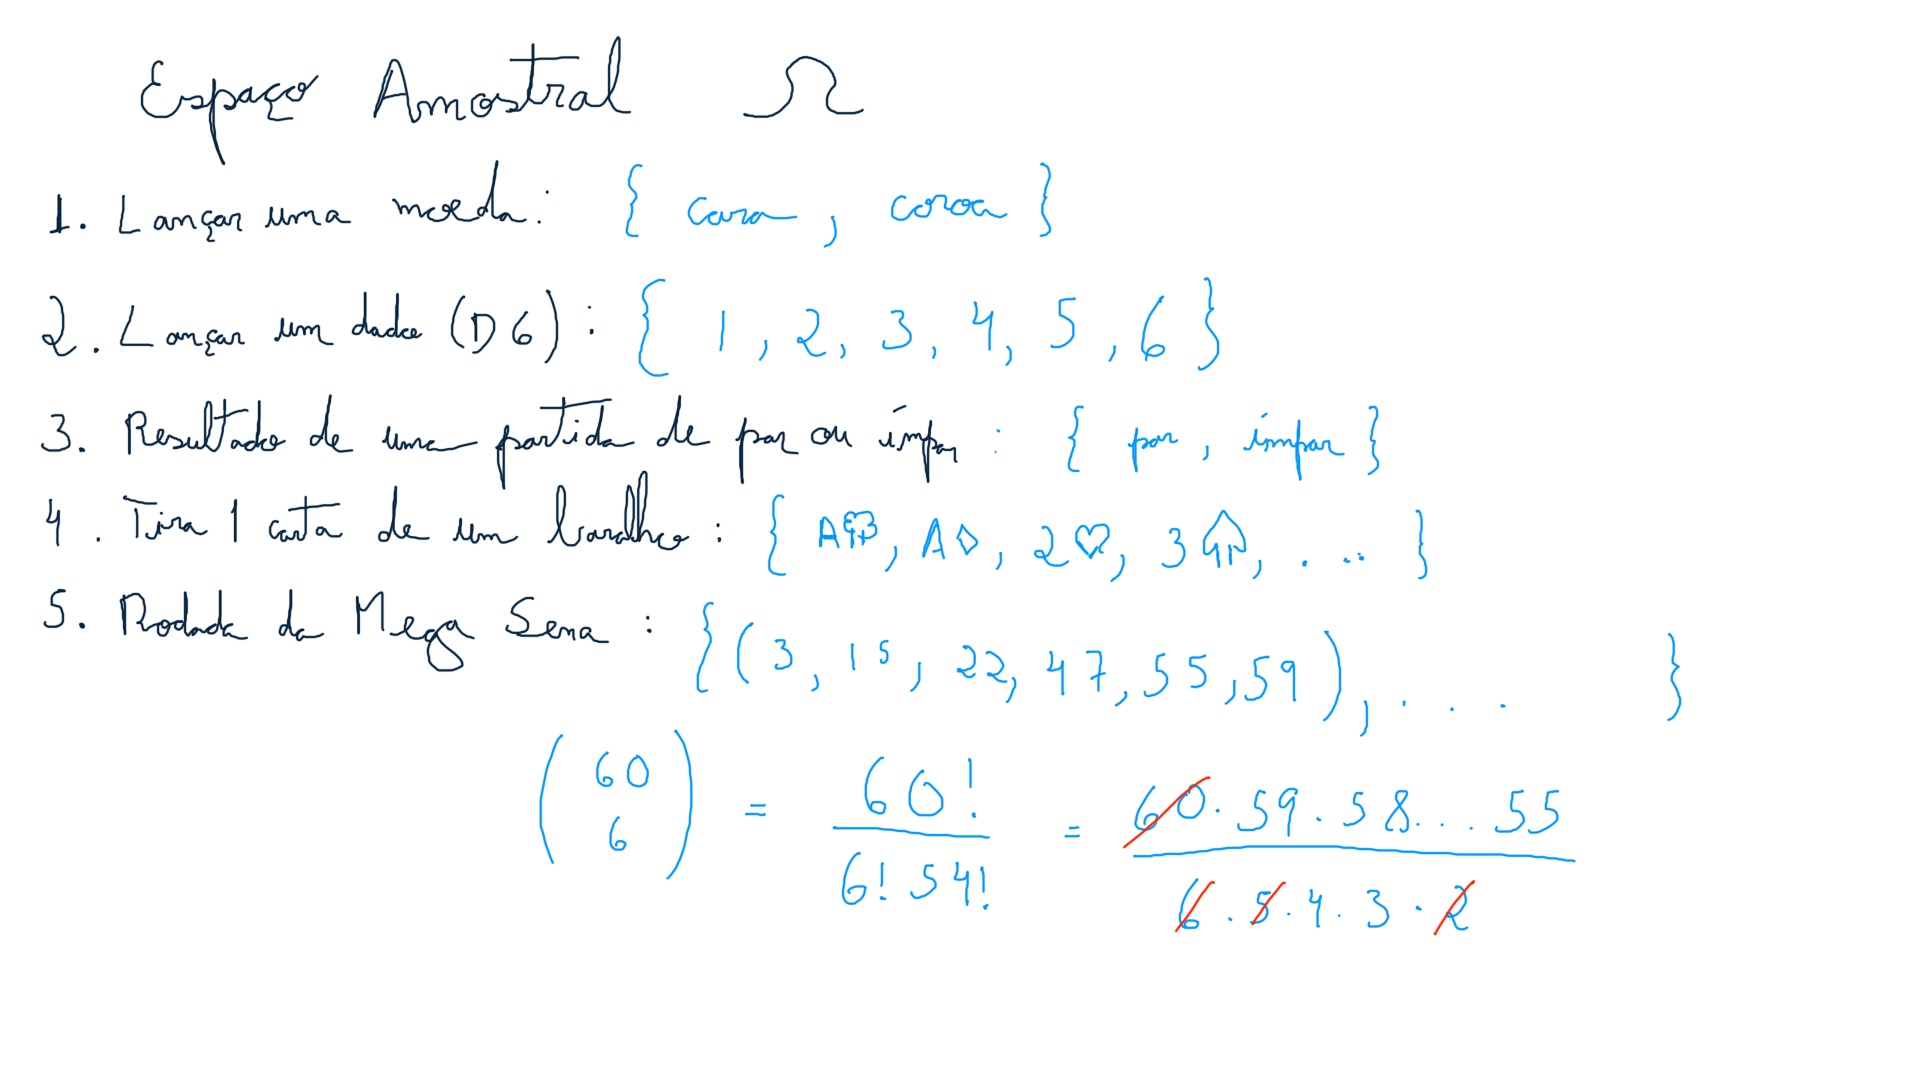 Espaço Amostral Ω
1. Lançar uma moeda: { cara, coroa }
2. Lançar um dado (D6): { 1, 2, 3, 4, 5, 6 }
3. Resultado de uma partida de par ou ímpar: { par, ímpar }
4. Tira 1 carta de um baralho: { A♣, A♢, 2♡, 3♤, ... }
5. Rodada da Mega Sena: { (3, 15, 22, 47, 55, 59), ... }
(60 6) = 60! / 6! 54! = 60 · 59 · 58 ... 55 / 6 · 5 · 4 · 3 · 2